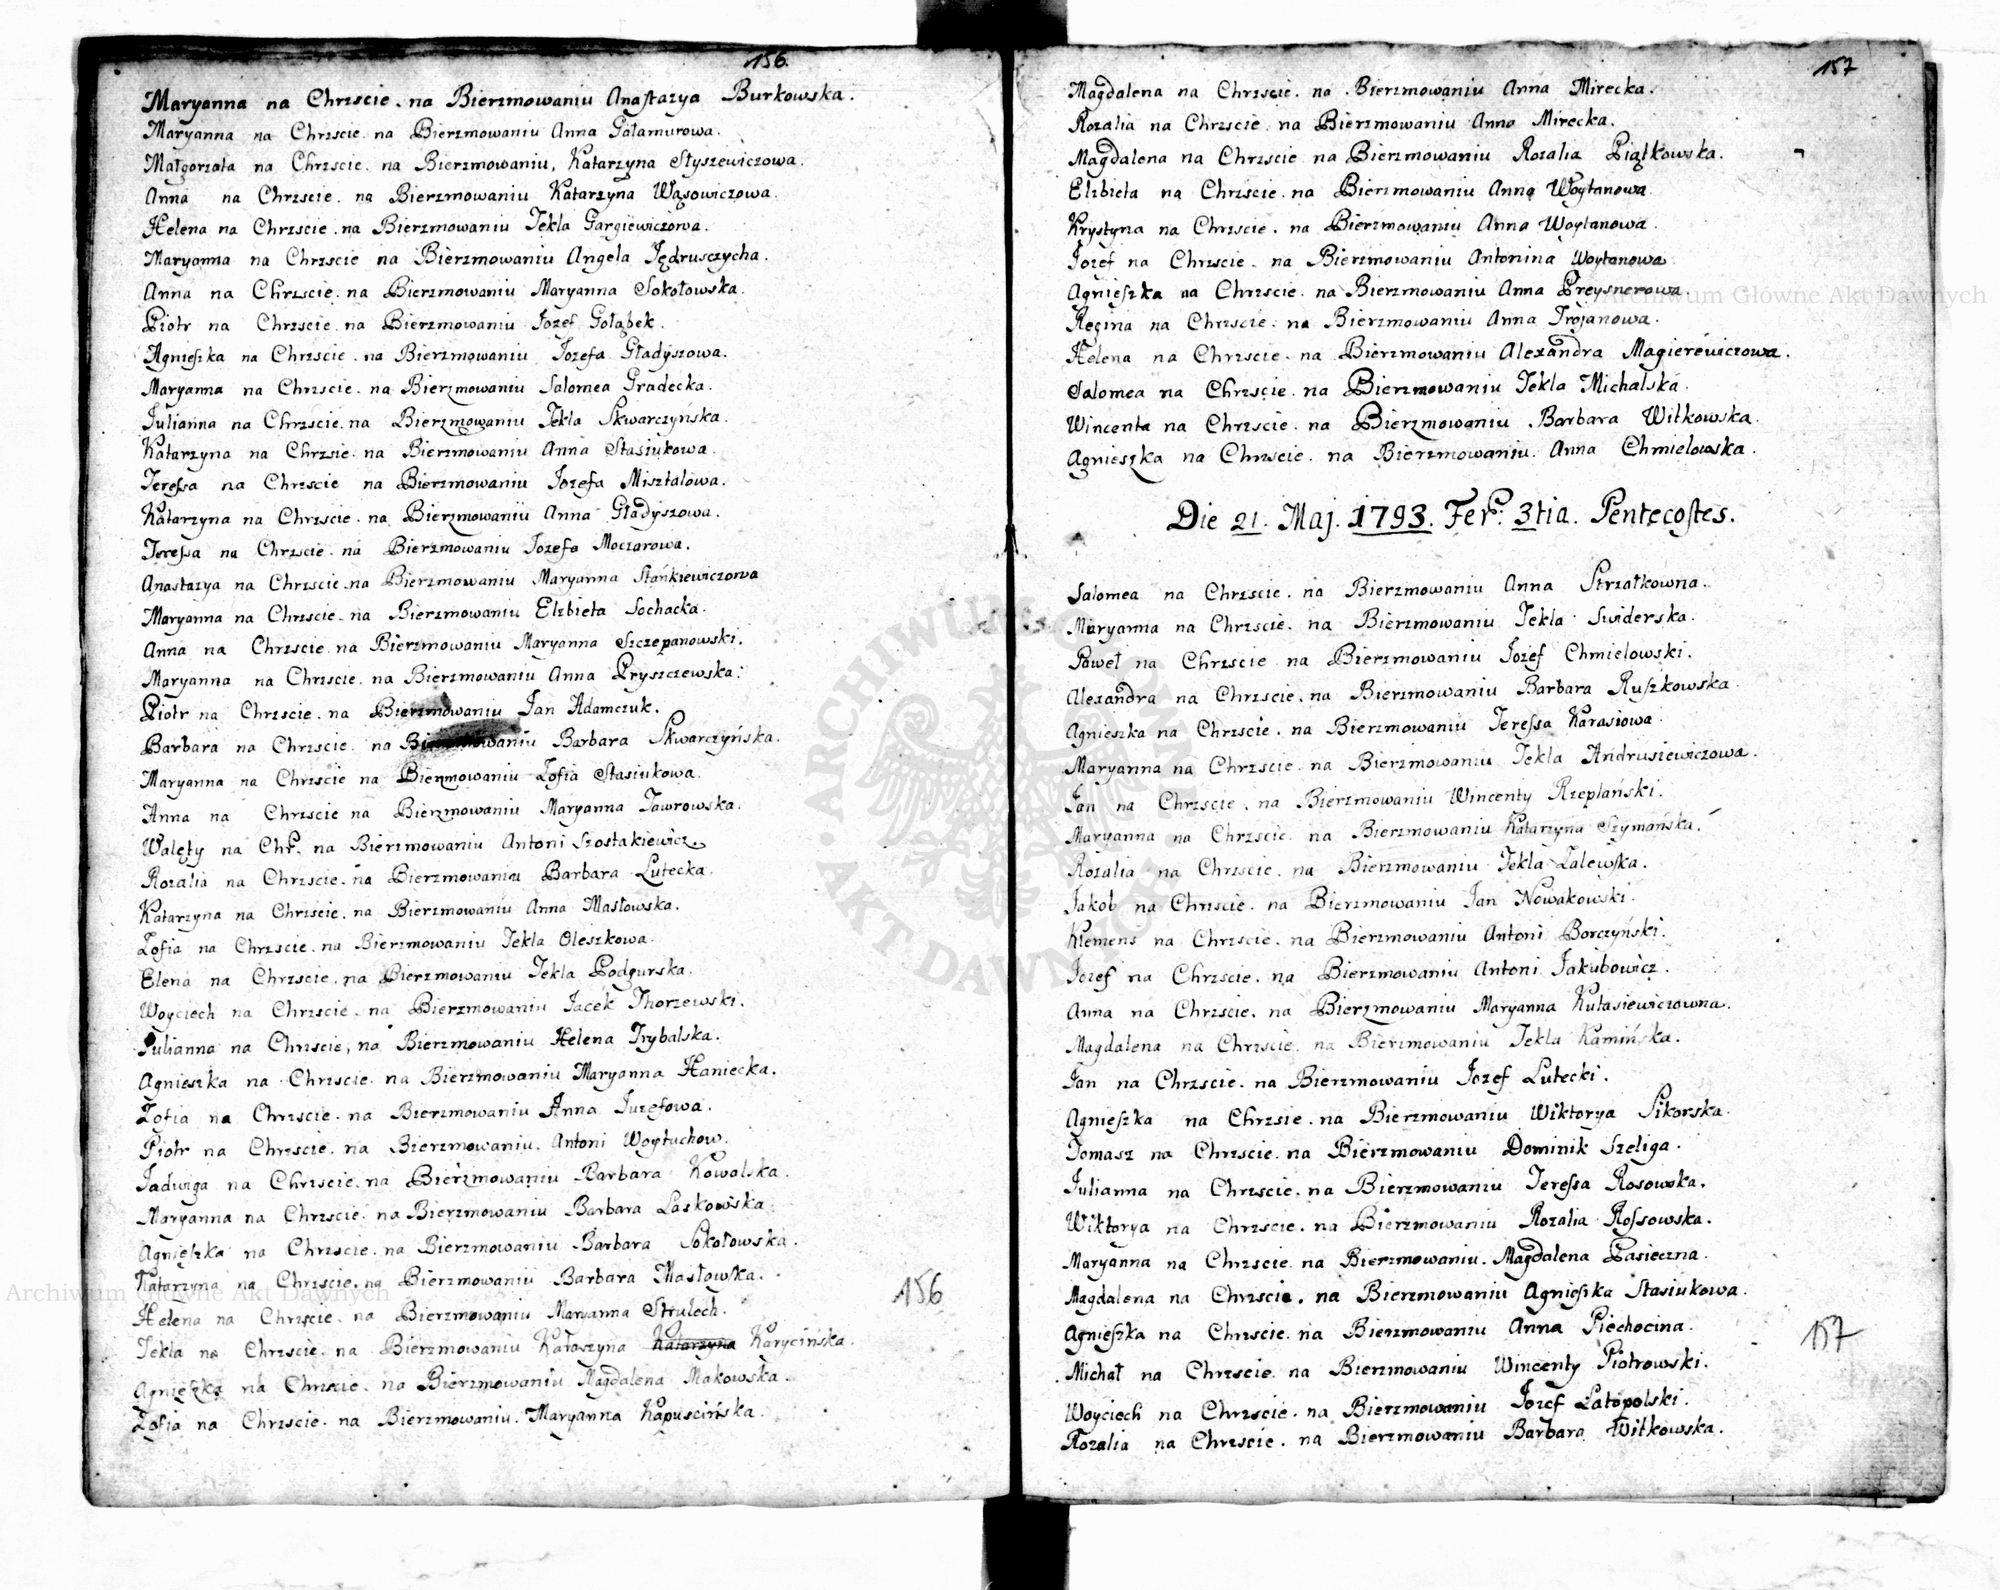 156.
Maryanna na Chrzscie. na Bierzmowaniu Anastazya Burkowska.
Maryanna na Chrzscie. na Bierzmowaniu Anna Gałamurowa.
Małgorzata na Chrzscie. na Bierzmowaniu, Katarzyna Słyszewiczowa.
Anna na Chrzscie. na Bierzmowaniu Katarzyna Wąsowiczowa.
Helena na Chrzscie. na Bierzmowaniu Tekla Gargiewiczowa.
Maryanna na Chrzscie na Bierzmowaniu Angela Jędrusczycha.
Anna na Chrzscie. na Bierzmowaniu Maryanna Sokołowska.
Piotr na Chrzscie. na Bierzmowaniu Jozef Gołąbek.
Agnieszka na Chrzscie. na Bierzmowaniu Jozefa Gładyszowa.
Maryanna na Chrzscie. na Bierzmowaniu Salomea Gradecka.
Julianna na Chrzscie. na Bierzmowaniu Tekla Skwarczyńska.
Katarzyna na Chrzsie. na Bierzmowaniu Anna Stasiukowa.
Teressa na Chrzscie na Bierzmowaniu Jozefa Misztalowa.
Katarzyna na Chrzscie. na Bierzmowaniu Anna Gładyszowa.
Teressa na Chrzscie. na Bierzmowaniu Jozefa Moczarowa.
Anastazya na Chrzscie. na Bierzmowaniu Maryanna Stańkiewiczowa
Maryanna na Chrzscie. na Bierzmowaniu Elzbieta Sochacka.
Anna na Chrzscie. na Bierzmowaniu Maryanna Szczepanowski.
Maryanna na Chrzscie. na Bierzmowaniu Anna Pryszczewska.
Piotr na Chrzscie. na Bierzmowaniu Jan Adamczuk.
Barbara na Chrzscie. na Bierzmowaniu Barbara Skwarczyńska.
Maryanna na Chrzscie na Bierzmowaniu Zofia Stasiukowa.
Anna na Chrzscie na Bierzmowaniu Maryanna Jawrowska.
Walęty na Chr. na Bierzmowaniu Antoni Szostakiewicz.
Rozalia na Chrzscie. na Bierzmowaniu Barbara Lutecka.
Katarzyna na Chrzscie. na Bierzmowaniu Anna Masłowska.
Zofia na Chrzscie. na Bierzmowaniu Tekla Oleszkowa.
Elena na Chrzscie. na Bierzmowaniu Tekla Podgurska.
Woyciech na Chrzscie. na Bierzmowaniu Jacek Thorzewski.
Julianna na Chrzscie, na Bierzmowaniu Helena Trybalska.
Agnieszka na Chrzscie. na Bierzmowaniu Maryanna Haniecka.
Zofia na Chrzscie. na Bierzmowaniu Anna Juzefowa.
Piotr na Chrzscie. na Bierzmowaniu. Antoni Woytuchow.
Jadwiga na Chrzscie. na Bierzmowaniu Barbara Kowalska.
Maryanna na Chrzscie. na Bierzmowaniu Barbara Laskowska.
Agnieszka na Chrzscie. na Bierzmowaniu Barbara Sokołowska.
Katarzyna na Chrzscie. na Bierzmowaniu Barbara Masłowska.
Helena na Chrzscie. na Bierzmowaniu Maryanna Strulech.
Tekla na Chrzscie. na Bierzmowaniu Kataszyna Katarzyna Karycińska.
Agnieszka na Chrzscie. na Bierzmowaniu Magdalena Makowska.
Zofia na Chrzscie. na Bierzmowaniu. Maryanna Kapuscińska.
156
157
Magdalena na Chrzscie. na Bierzmowaniu Anna Mirecka.
Rozalia na Chrzscie. na Bierzmowaniu Anna Mirecka.
Magdalena na Chrzscie na Bierzmowaniu Rozalia Piątkowska.
Elzbieta na Chrzscie. na Bierzmowaniu Anna Woytanowa.
Krystyna na Chrzscie. na Bierzmowaniu Anna Woytanowa.
Jozef na Chrzscie. na Bierzmowaniu Antonina Woytanowa
Agnieszka na Chrzscie. na Bierzmowaniu Anna Preysnerowa.
Regina na Chrzscie. na Bierzmowaniu Anna Trojanowa.
Helena na Chrzscie. na Bierzmowaniu Alexandra Magierewiczowa.
Salomea na Chrzscie. na Bierzmowaniu Tekla Michalska.
Wincenta na Chrzscie. na Bierzmowaniu. Barbara Witkowska.
Agnieszka na Chrzscie. na Bierzmowaniu. Anna Chmielowska.
Die 21. Maj. 1793. Fer: 3tia. Pentecostes.
Salomea na Chrzscie. na Bierzmowaniu Anna Strzałkowna.
Maryanna na Chrzscie. na Bierzmowaniu Tekla Swiderska.
Paweł na Chrzscie na Bierzmowaniu Jozef Chmielowski.
Alexandra na Chrzscie. na Bierzmowaniu Barbara Ruszkowska
Agnieszka na Chrzscie. na Bierzmowaniu Teressa Karasiowa.
Maryanna na Chrzscie. na Bierzmowaniu Tekla Andrusiewiczowa.
Jan na Chrzscie. na Bierzmowaniu Wincenty Rzeplański.
Maryanna na Chrzscie. na Bierzmowaniu Katarzyna Szymańska.
Rozalia na Chrzscie. na Bierzmowaniu Tekla Zalewska.
Jakob na Chrzscie. na Bierzmowaniu Jan Nowakowski.
Klemens na Chrzscie. na Bierzmowaniu Antoni Borczyński.
Jozef na Chrzscie. na Bierzmowaniu Antoni Jakubowicz.
Anna na Chrzscie. na Bierzmowaniu Maryanna Kutasiewiczowna.
Magdalena na Chrzscie. na Bierzmowaniu Tekla Kamińska.
Jan na Chrzscie. na Bierzmowaniu Jozef Lutecki.
Agnieszka na Chrzsie. na Bierzmowaniu Wiktorya Sikorska.
Tomasz na Chrzscie. na Bierzmowaniu Dominik Szeliga.
Julianna na Chrzscie. na Bierzmowaniu Teressa Rosowska.
Wiktorya na Chrzscie. na Bierzmowaniu Rozalia Rossowska.
Maryanna na Chrzscie. na Bierzmowaniu. Magdalena Pasieczna.
Magdalena na Chrzscie. na Bierzmowaniu Agnieszka Stasiukowa.
Agnieszka na Chrzscie. na Bierzmowaniu Anna Piechocina.
Michał na Chrzscie. na Bierzmowaniu Wincenty Piotrowski.
Woyciech na Chrzscie. na Bierzmowaniu Jozef Latopolski.
Rozalia na Chrzscie. na Bierzmowaniu Barbara Witkowska.
157
Archiwum Główne Akt Dawnych
Archiwum Główne Akt Dawnych
ARCHIWUM GŁÓWNE AKT DAWNYCH